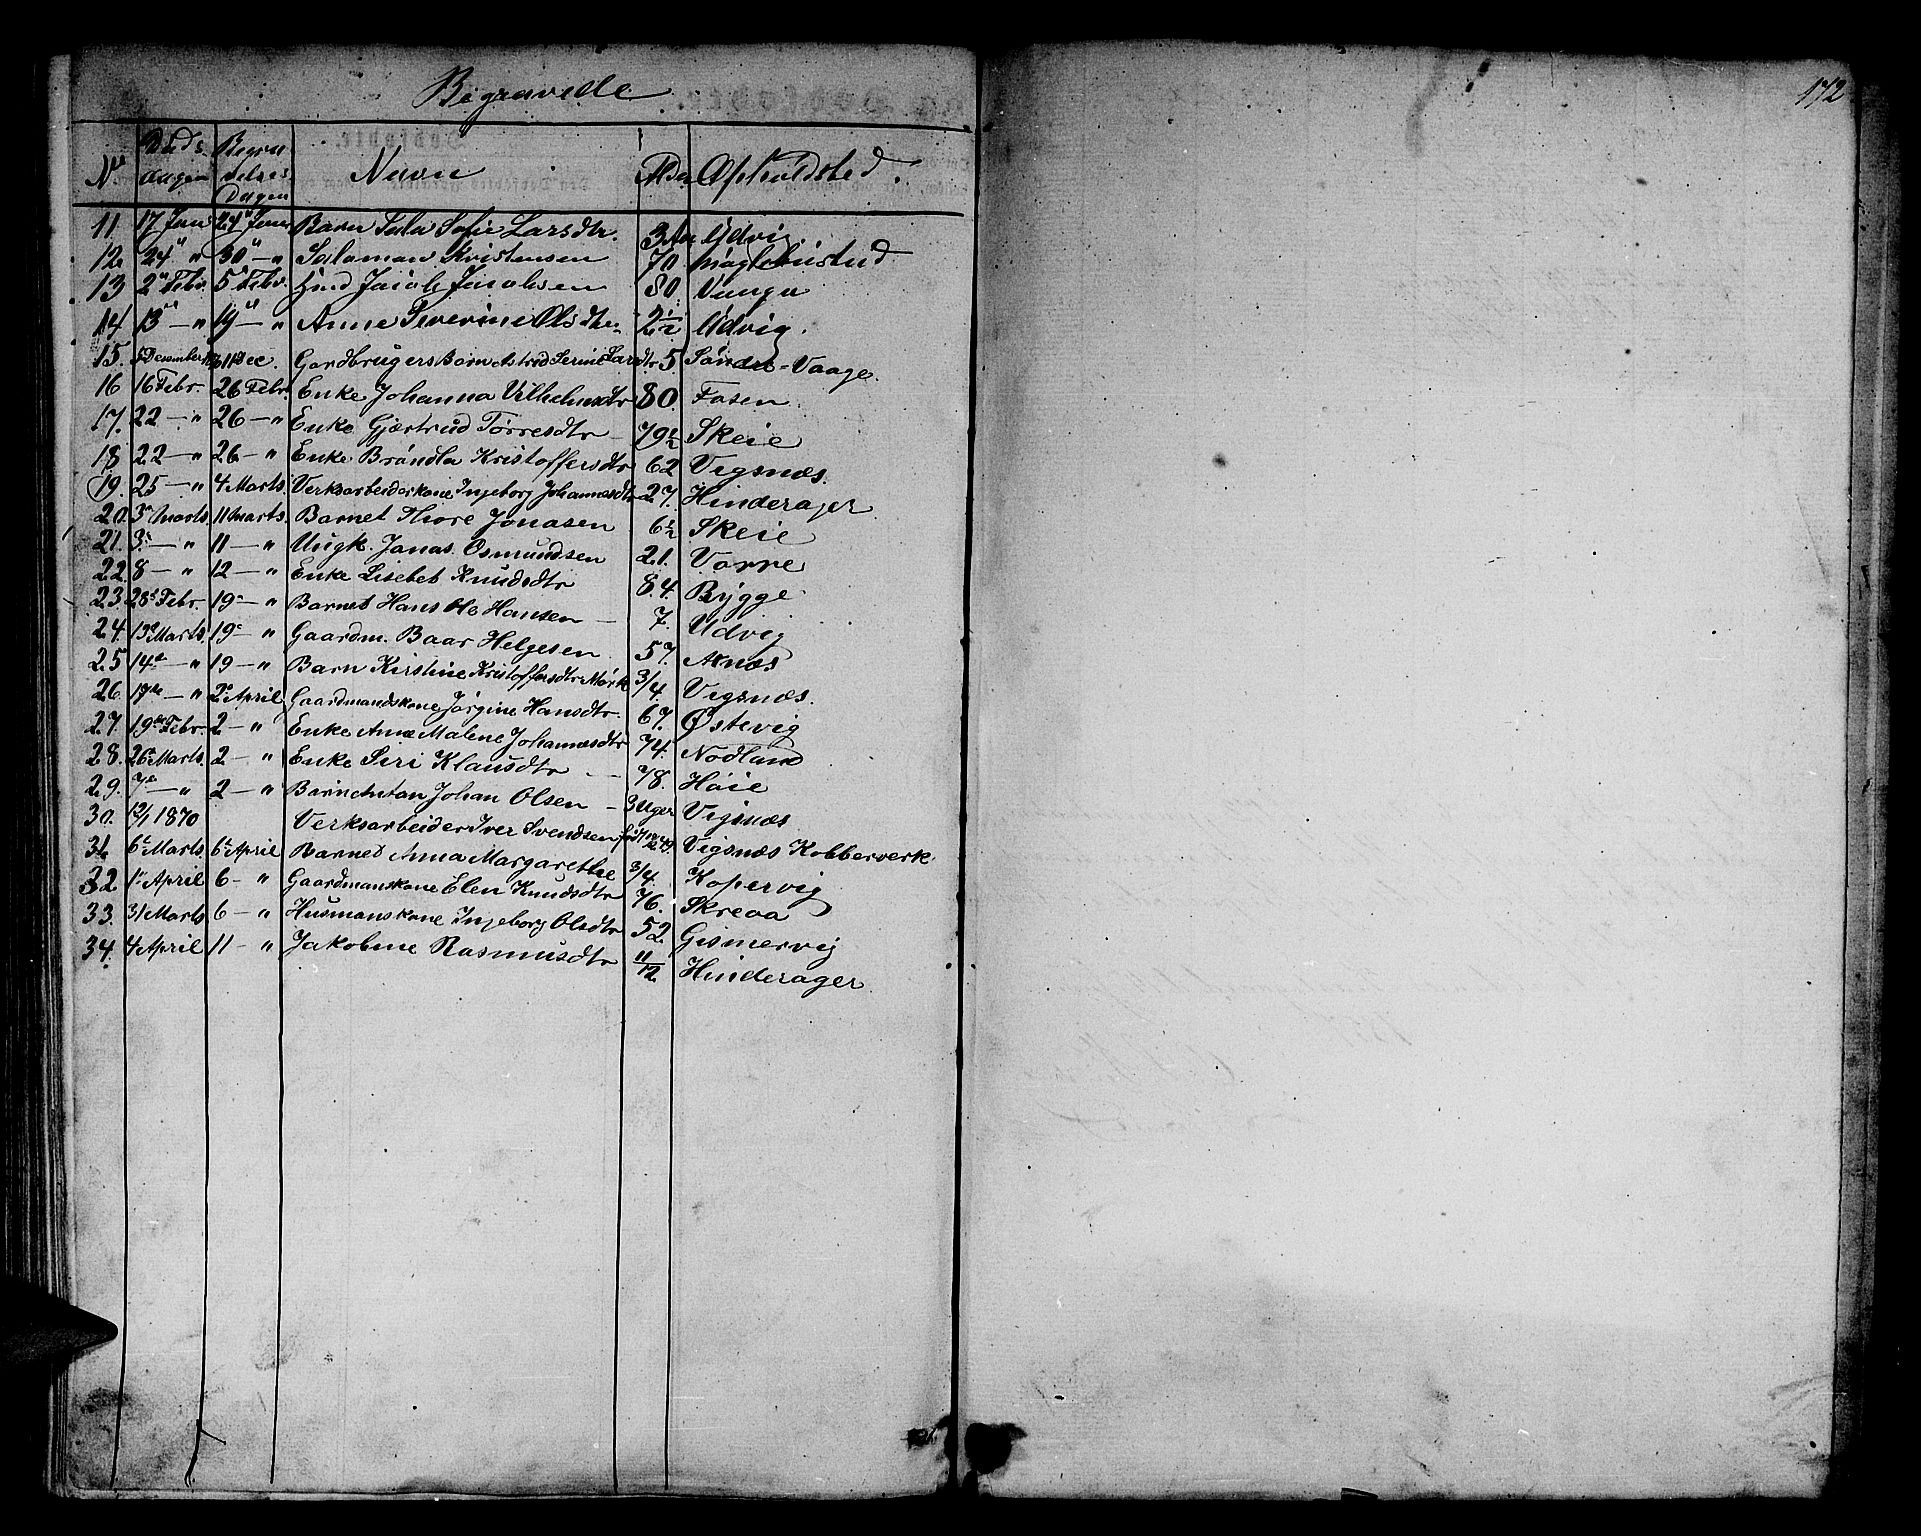 172
Begravede
No Døds dagen Begravelses Dagen Navn Alder Opholdsted.
11 17 Janr 24" Janr Barn Sofie Larsdtr. 3 Aar Udvig
12. 24" " 30" — " Salaman Kristensen 70
13 2" Febr 5" Febr. Jacob Jacobsen 80
14 13" — " 19" — " Anne Severine Olsdtr 2 1/2 Udvig.
15. 5 Desember 11 Dec. Gardbrugers Barn Astrid Serine Larsdtr 5 Søndre - Vaage.
16 16 Febr. 26 Febr. Enke Johanna Vilhelmsdtr 80 Fosen
17. 22 — " 26 — " Enke Gjærtrud Tørresdtr — 79 1/2 Skeie
18 22 — " 26 — " Enke Brøndla Kristoffersdtr 62 Vigsnæs.
19. 25 — " 4 Marts. Verksarbeiderkone Ingeborg Johannesdtr 27. Hinderager
20. 3" Marts 11 Marts. Barnet Thore Jonasen 6 1/2 Skeie
21. 3 — " 11 — " Ungk. Jonas Osmundsen 21. Vorre
22. 8 — " 12 — " Enke Lisebet Knudsdtr 84. Bygge
23 28 Febr. 19 — " Barnet Hans Ole Hansen — 7. Udvig
24. 13 Marts. 19 — " Gaardm. Baar Helgesen 57. Aknæs
25 14 — " 19 — " Barn Kirstine Kristoffersdtr Mørk 3/4. Vigsnæs.
26. 17 — " 2 April Gaardmandskone Jørgine Hansdtr. 67. Østevig
27. 19 Febr. 2 — " Enke Anne Malene Johannesdtr 74. Nodland
28. 26 Marts. 2 — " Enke Siri Klausdtr — 78. Høie
29. 7 — " 2 — " Barn Antan Johan Olsen — 3 Uger Vigsnæs
30. 13/1 1870 Verksarbeider Iver Svendsen Vigsnæs Kobberverk.
31. 6 Marts 6 April Barnet Anna Margarethe 3/4. Kopervig
32. 1 April 6 — " Gaardmanskone Elen Knudsdtr 76. Skreoa
33. 31 Marts 6 — " Husmanskone Ingeborg Olsdtr 52 Gismervig
34. 4 April 11 — " Jakobine Rasmusdtr 11/12 Hinderager